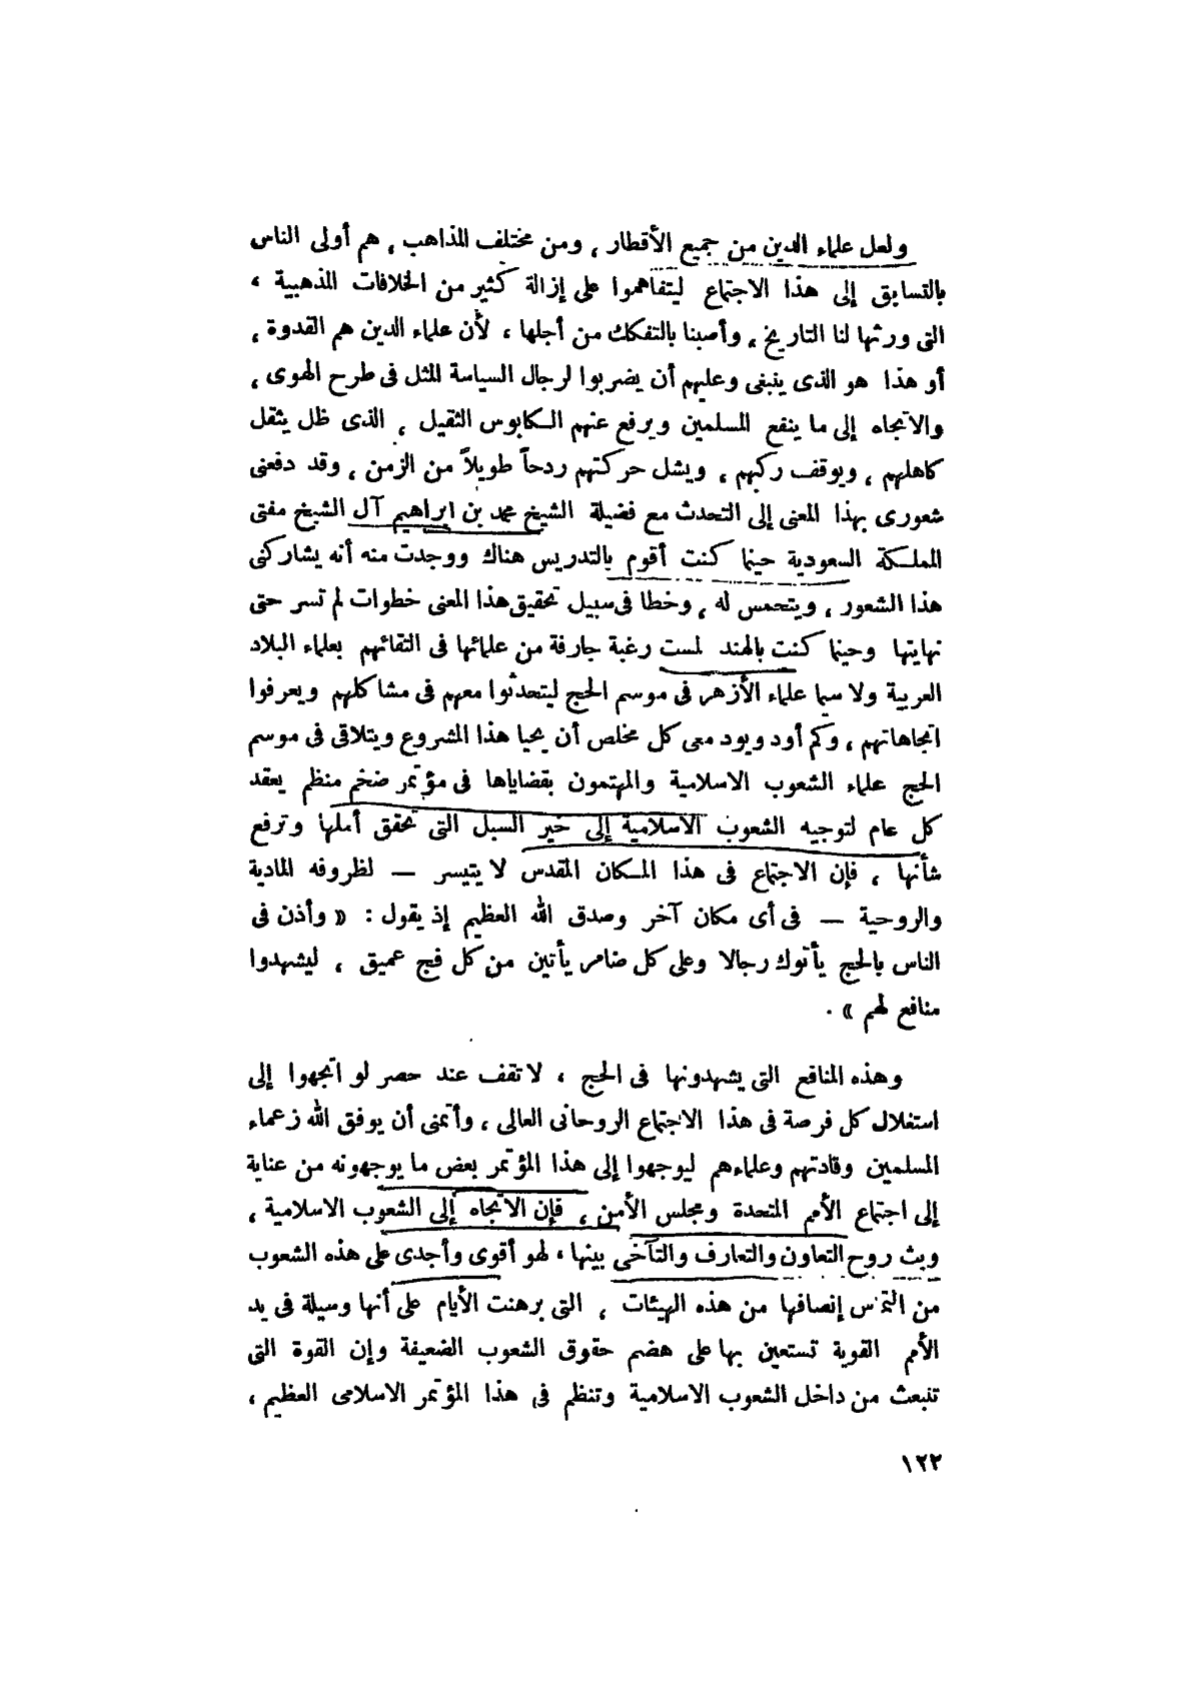 ولعل علماء الدين من جميع الأقطار ، ومن مختلف المذاهب ، هم أولى الناس
بالتسابق إلى هذا الاجتماع ليتفاهموا على إزالة كثير من الخلافات المذهبية ،
التى ورثها لنا التاريخ ، وأصبنا بالتفكك من أجلها ، لأن علماء الدين هم القدوة ،
أو هذا هو الذى ينبغى وعليهم أن يضربوا لرجال السياسة المثل فى طرح الهوى ،
والاتجاه إلى ما ينفع المسلمين ويرفع عنهم الكابوس الثقيل ، الذى ظل يثقل
كاهلهم ، ويوقف ركبهم ، ويشل حركتهم ردحاً طويلاً من الزمن ، وقد دفعنى
شعورى بهذا المعنى إلى التحدث مع فضيلة الشيخ محمد بن ابراهيم آل الشيخ مفتى
المملكة السعودية حينما كنت أقوم بالتدريس هناك ووجدت منه أنه يشاركنى
هذا الشعور ، ويتحمس له ، وخطا فى سبيل تحقيق هذا المعنى خطوات لم تسر حتى
نهايتها وحينما كنت بالهند لمست رغبة جارفة من علمائها فى التقائهم بعلماء البلاد
العربية ولا سيما علماء الأزهر فى موسم الحج ليتحدثوا معهم فى مشاكلهم ويعرفوا
اتجاهاتهم ، وكم أود ويود معى كل مخلص أن يحيا هذا المشروع ويتلاقى فى موسم
الحج علماء الشعوب الاسلامية والمهتمون بقضاياها فى مؤتمر ضخم منظم يعقد
كل عام لتوجيه الشعوب الاسلامية إلى خير السبل التى تحقق أملها وترفع
شأنها ، فإن الاجتماع فى هذا المكان المقدس لا يتيسر — لظروفه المادية
والروحية — فى أى مكان آخر وصدق الله العظيم إذ يقول : « وأذن فى
الناس بالحج يأتوك رجالا وعلى كل ضامر يأتين من كل فج عميق ، ليشهدوا
منافع لهم » .
وهذه المنافع التى يشهدونها فى الحج ، لا تقف عند حصر لو اتجهوا إلى
استغلال كل فرصة فى هذا الاجتماع الروحانى العالى ، وأتمنى أن يوفق الله زعماء
المسلمين وقادتهم وعلماءهم ليوجهوا إلى هذا المؤتمر بعض ما يوجهونه من عناية
إلى اجتماع الأمم المتحدة ومجلس الأمن ، فإن الاتجاه إلى الشعوب الاسلامية ،
وبث روح التعاون والتعارف والتآخى بينها ، لهو أقوى وأجدى على هذه الشعوب
من التماس إنصافها من هذه الهيئات ، التى برهنت الأيام على أنها وسيلة فى يد
الأمم القوية تستعين بها على هضم حقوق الشعوب الضعيفة وإن القوة التى
تنبعث من داخل الشعوب الاسلامية وتنظم فى هذا المؤتمر الاسلامى العظيم ،
١٢٢